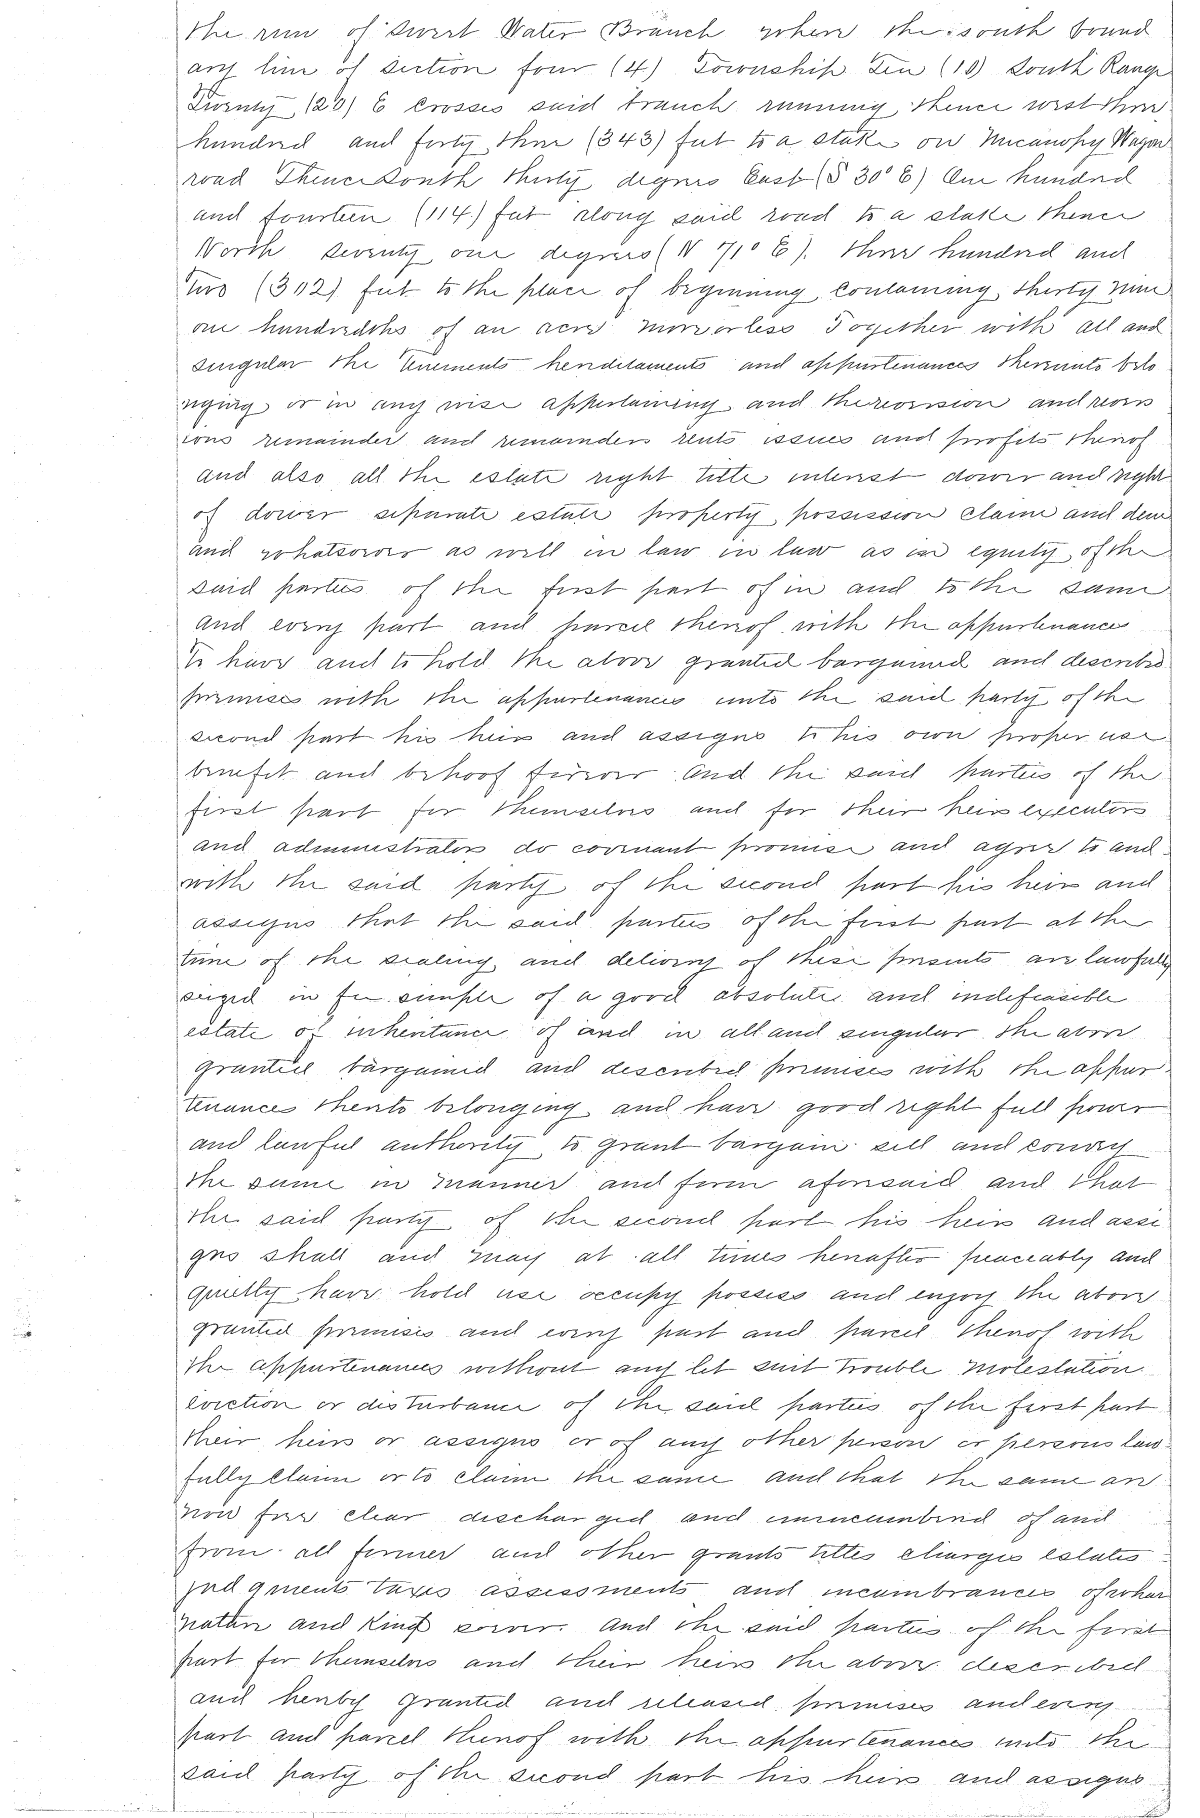 the run of Sweet Water Branch where the south bound
ary line of section four (4) Township Ten (10) South Range
Twenty (20) E crosses said branch running thence west three
hundred and forty three (343) feet to a stake on Micanopy Wagon
road Thence South thirty degrees East (S 30° E) One hundred
and fourteen (114) feet along said road to a stake thence
North seventy one degrees (N 71° E). three hundred and
Two (302) feet to the place of beginning containing thirty nine
one hundredths of an acre more or less Together with all and
singular the tenements hereditaments and appurtenances thereunto belo
nging or in any wise appertaining and the reversion and revers
ions remainder and remainders rents issues and profits thereof
and also all the estate right title interest dower and right
of dower separate estate property possession claim and dem
and whatsoever as well in law in law as in equity of the
said parties of the first part of in and to the same
and every part and parcel thereof with the appurtenances
To have and to hold the above granted bargained and described
premises with the appurtenances unto the said party of the
second part his heirs and assigns to his own proper use
benefit and behoof forever And the said parties of the
first part for themselves and for their heirs executors
and administrators do covenant promise and agree to and
with the said party of the second part his heirs and
assigns that the said parties of the first part at the
time of the sealing and delivery of these presents are lawfully
seized in fee simple of a good absolute and indefeasible
estate of inheritance of and in all and singular the above
granted bargained and described premises with the appur
tenances thereto belonging and have good right full power
and lawful authority to grant bargain sell and convey
the same in manner and form aforesaid and that
the said party of the second part his heirs and assi
gns shall and may at all times hereafter peaceably and
quietly have hold use occupy possess and enjoy the above
granted premises and every part and parcel thereof with
the appurtenances without any let suit trouble molestation
eviction or disturbance of the said parties of the first part
their heirs or assigns or of any other person or persons law-
fully claim or to claim the same and that the same are
now free clear discharged and unincumbered of and
from all former and other grants titles charges estates
judgments taxes assessments and incumbrances of whar
nature and Kind soever. And the said parties of the first
part for themselves and their heirs the above described
and hereby granted and released premises and every
part and parcel thereof with the appurtenances unto the
said party of the second part his heirs and assigns